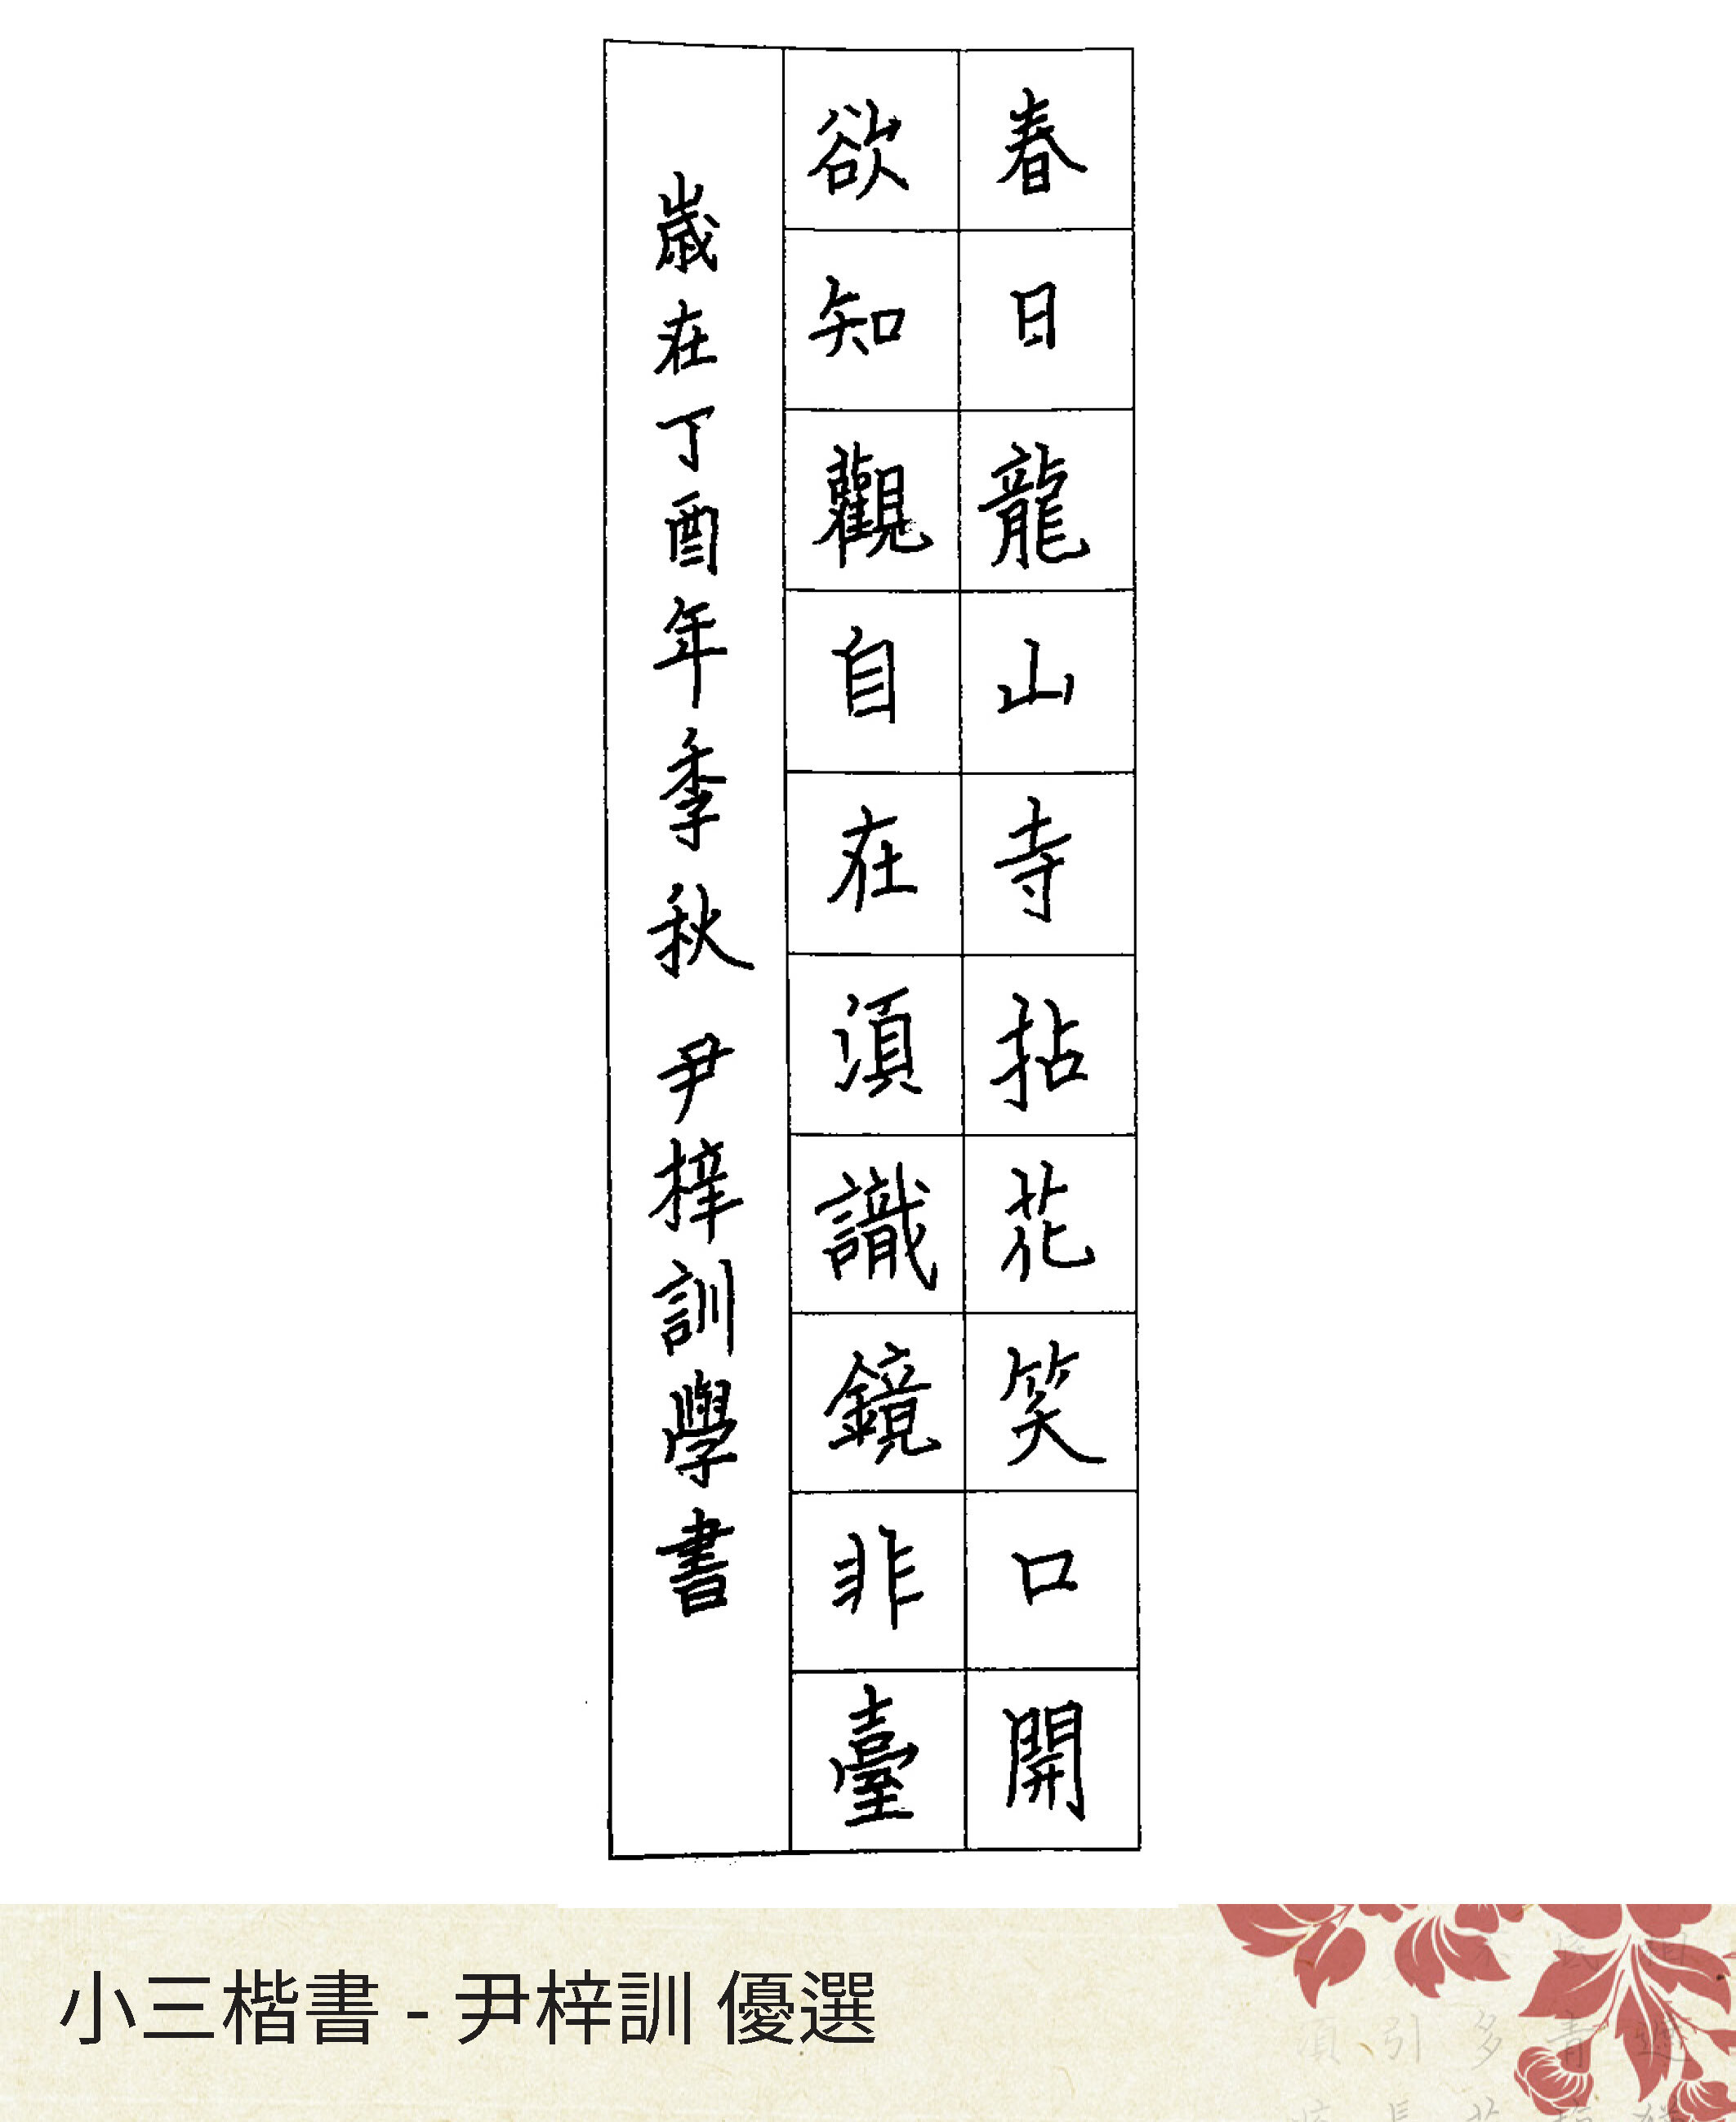 春日龍山寺拈花笑口開
欲知觀自在須識鏡非臺
歲在丁酉年季秋 尹梓訓學書
小三楷書 - 尹梓訓 優選